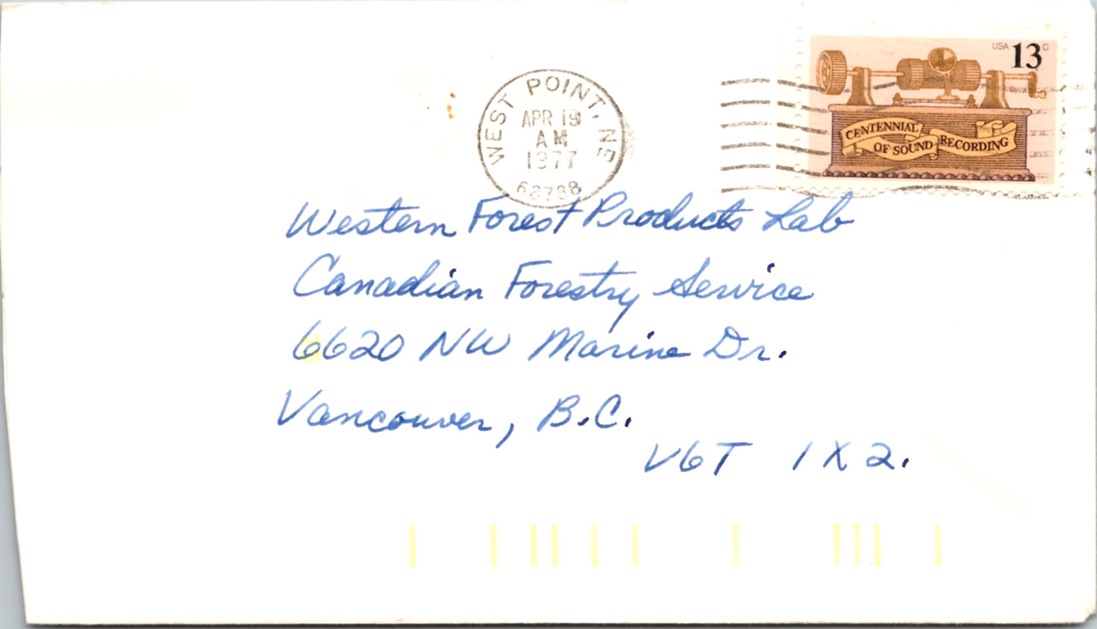 USA 13c
CENTENNIAL
OF SOUND RECORDING
WEST POINT, NE
APR 19
AM
1977
68788
Western Forest Products Lab
Canadian Forestry Service
6620 NW Marine Dr.
Vancouver, B.C.
V6T 1X2.